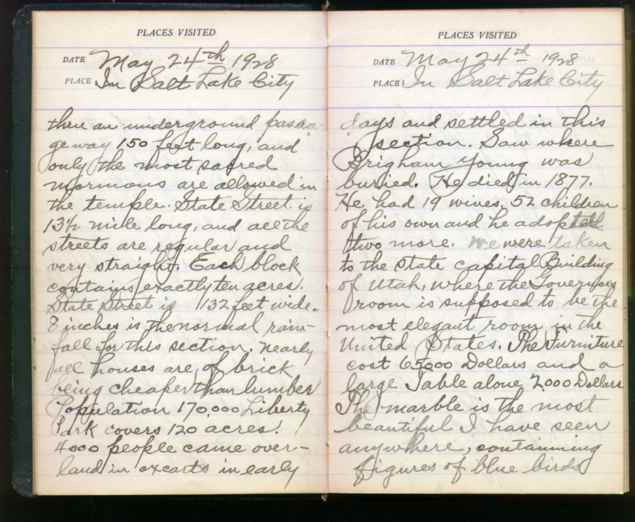 PLACES VISITED
DATE May 24th 1928
PLACE In Salt Lake City
thru an underground passa-
geway 150 feet long, and
only the most sacred
mormons are allowed in
the temple. State Street is
13½ mile long, and all the
streets are regular and
very straight. Each block
contains exactly ten acres.
State Street is 132 feet wide.
8 inches is the normal rain-
fall for this section, nearly
all houses are of brick
being cheaper than lumber
Population 170,000 Liberty
Park covers 120 acres!
4000 people came over-
land in oxcarts in early
PLACES VISITED
DATE May 24th 1928
PLACE In Salt Lake City
days and settled in this
section. Saw where
Brigham Young was
buried. He died in 1877.
He had 19 wives, 52 children
of his own and he adopted
two more. We were taken
to the state capital Building
of Utah, where the Governors
room is supposed to be the
most elegant room in the
United States. The furniture
cost 65000 Dollars and a
large Table alone 2000 Dollars
The marble is the most
beautiful I have seen
anywhere, containing
figures of blue birds